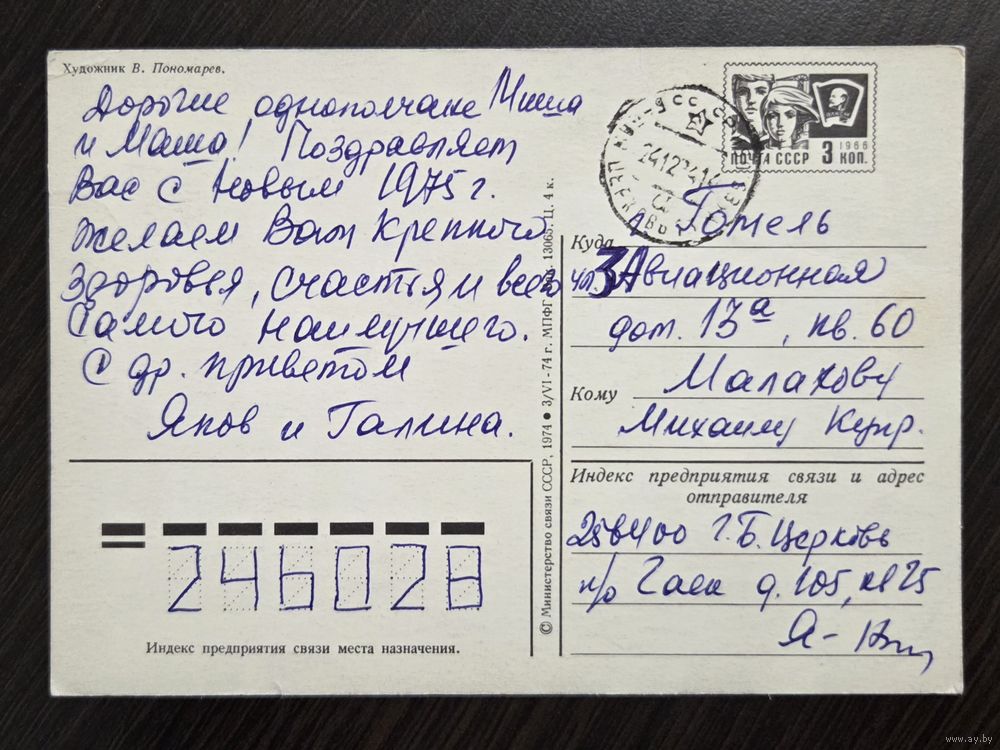 Художник В. Пономарев.
Дорогие однополчане Миша
и Маша! Поздравляем
Вас с Новым 1975 г.
Желаем Вам крепкого
здоровья, счастья и всего
самого наилучшего.
С др. приветом
Яков и Галина.
ПОЧТА СССР 3 КОП.
1966
Куда г. Гомель
ул. 3 Авиационная
дом. 13а, кв. 60
Кому Малахову
Михаилу Купр.
Индекс предприятия связи и адрес
отправителя
г. Б. Церковь
п/о Гаек д. 105, кв 25
246028
Индекс предприятия связи места назначения.
© Министерство связи СССР, 1974 ● 3/VI-74 г. МПФГ 13065. Ц. 4 к.
www.ay.by